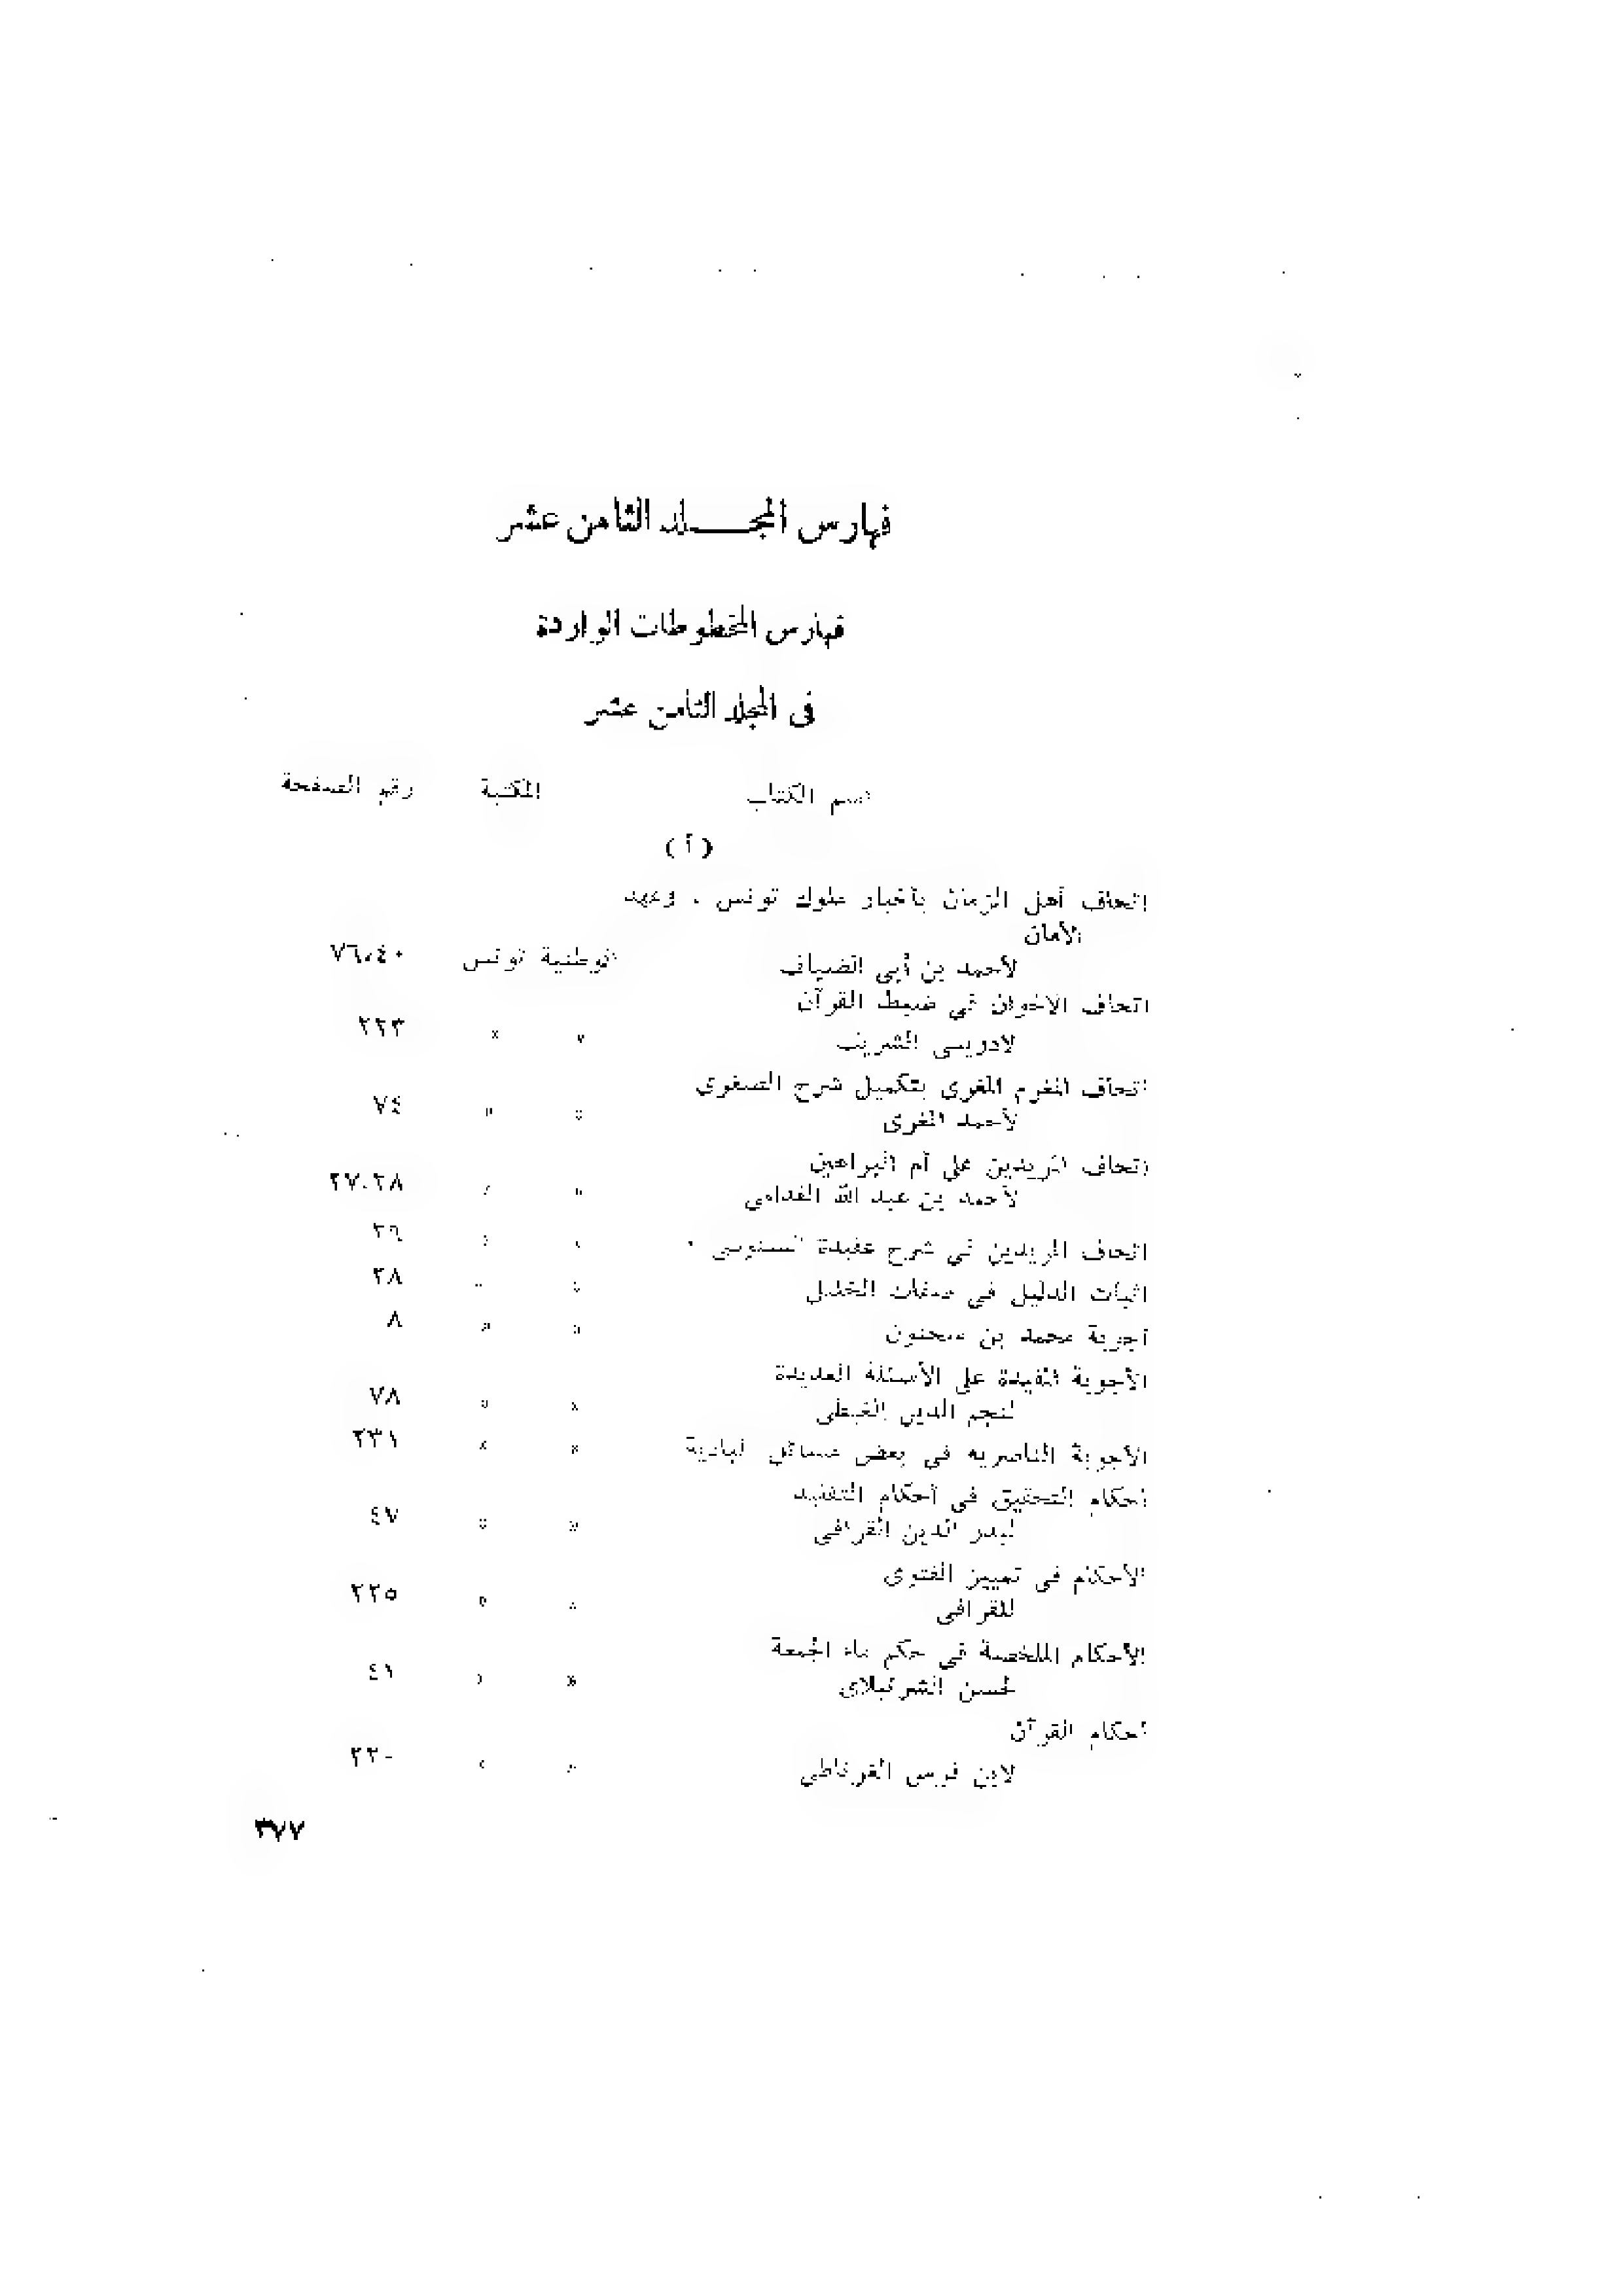 فهارس المجـــلد الثامن عشر
فهارس المخطوطات الواردة
فى المجلد الثامن عشر
اسم الكتاب المكتبة رقم الصفحة
( أ )
اتحاف أهل الزمان بأخبار ملوك تونس ، وعهد
الأمان
لأحمد بن أبى الضياف الوطنية تونس ٧٦،٤٠
اتحاف الاخوان في ضبط القرآن
لادويسى الشريف » » ٢٢٣
اتحاف المغرم المغرى بتكميل شرح الصغرى
لأحمد المغرى » » ٧٤
اتحاف المريدين على أم البراهين
لأحمد بن عبد الله الغدامى » » ٢٧،٢٨
اتحاف المريدين في شرح عقيدة السنوسى . » » ٢٩
اثبات الدليل في صفات الخليل » » ٢٨
أجوبة محمد بن سحنون » » ٨
الأجوبة المفيدة على الأسئلة العديدة
لنجم الدين الغيطى » » ٧٨
الأجوبة الناصريه في بعض مسائل البادية » » ٢٣١
أحكام التحقيق في أحكام التقليد
لبدر الدين القرافى » » ٤٧
الأحكام فى تمييز الفتوى
للقرافى » » ٢٢٥
الأحكام الملخصة في حكم ماء الجمعة
لحسن الشرنبلاى » » ٤١
أحكام القرآن
لابن فرس الغرناطى » » ٢٢٠
٣٧٧